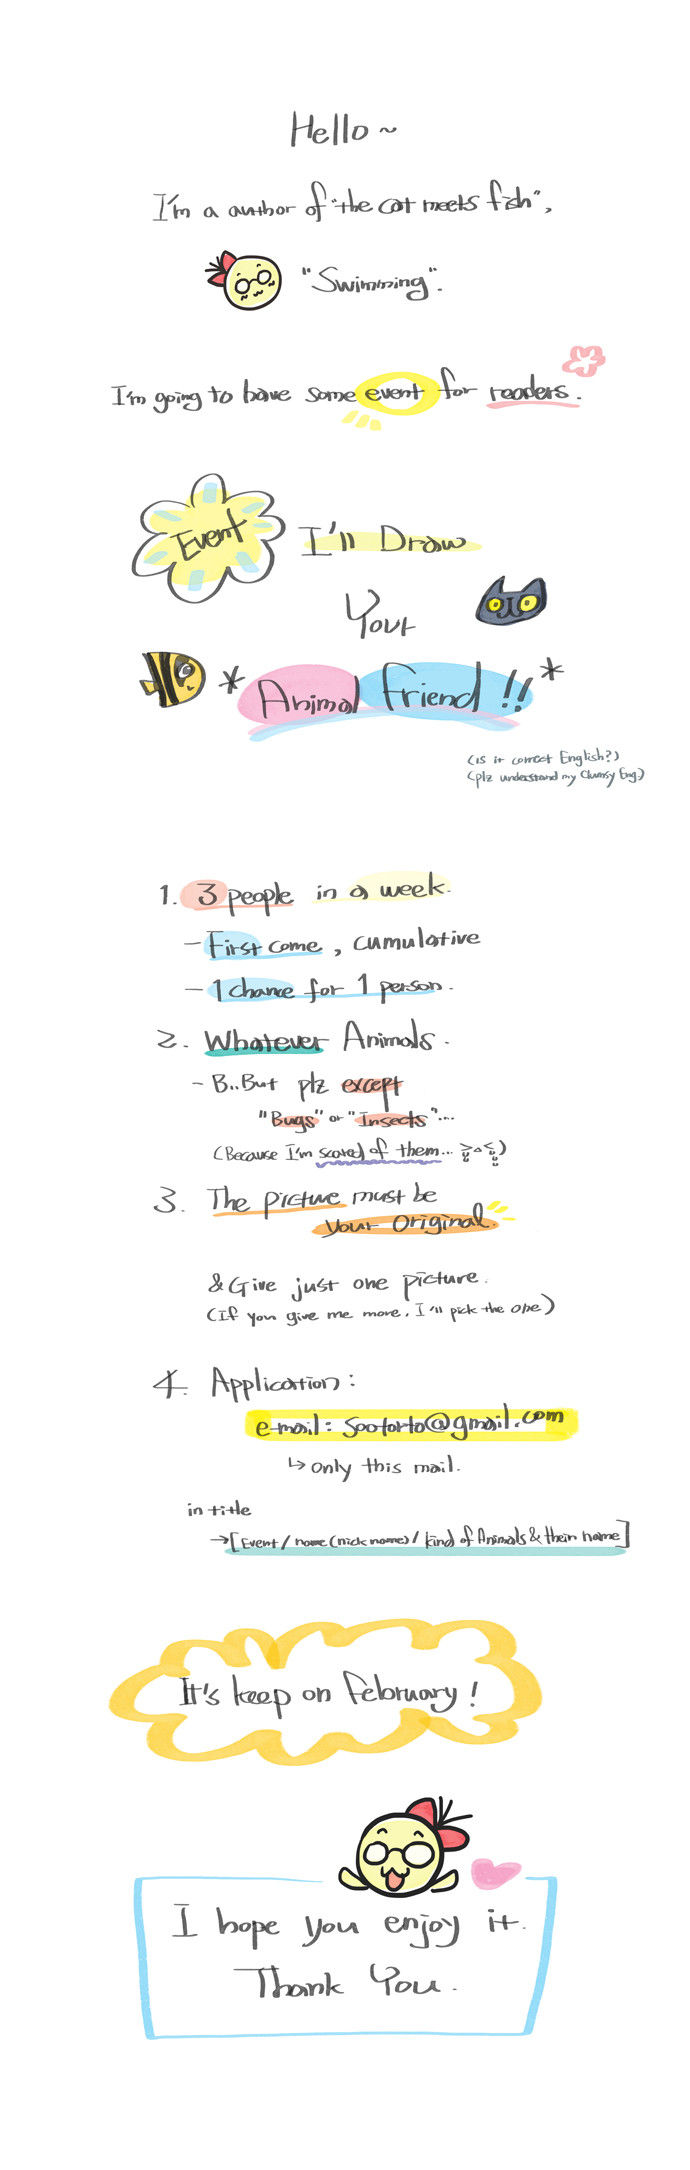 Hello ~
I'm a author of "the cat meets fish",
"Swimming".
I'm going to have some event for readers.
Event
I'll Draw
Your
* Animal friend !! *
(Is it correct English?)
(plz understand my Clumsy Eng.)
1. 3 people in a week.
- First come, cumulative
- 1 chance for 1 person.
2. Whatever Animals.
- B..But plz except
"Bugs" or "Insects"...
(Because I'm scared of them...)
3. The picture must be
your original.
& Give just one picture.
(If you give me more, I'll pick the one)
4. Application:
e-mail: sootarto@gmail.com
↳ only this mail.
in title
→[Event / name (nick name) / kind of Animals & their name]
It's keep on February!
I hope you enjoy it.
Thank You.